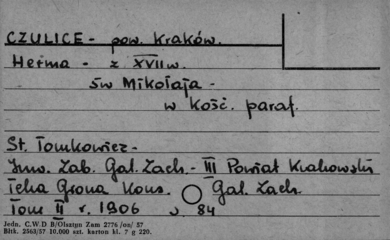 CZULICE - pow. Kraków.
Herma - z XVII w.
św Mikołaja -
w Kość. paraf.
St. Tomkowicz -
Inw. Zab. Gal. Zach. - III Powiat Krakowski
Teka Grona Kons. Gal. Zach.
Tom II r. 1906 s. 84
Jedn. C.W D B/Olsztyn Zam 2776/en/ 57
Bltk. 2563/57 10.000 szt. karton kl. 7 g 220.